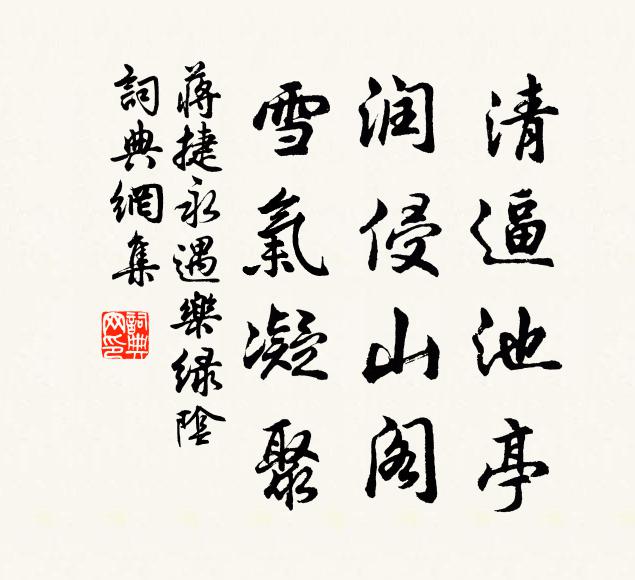 清逼池亭
润侵山阁
雪氣凝聚
蔣捷永遇樂绿陰
詞典網集
詞典网印